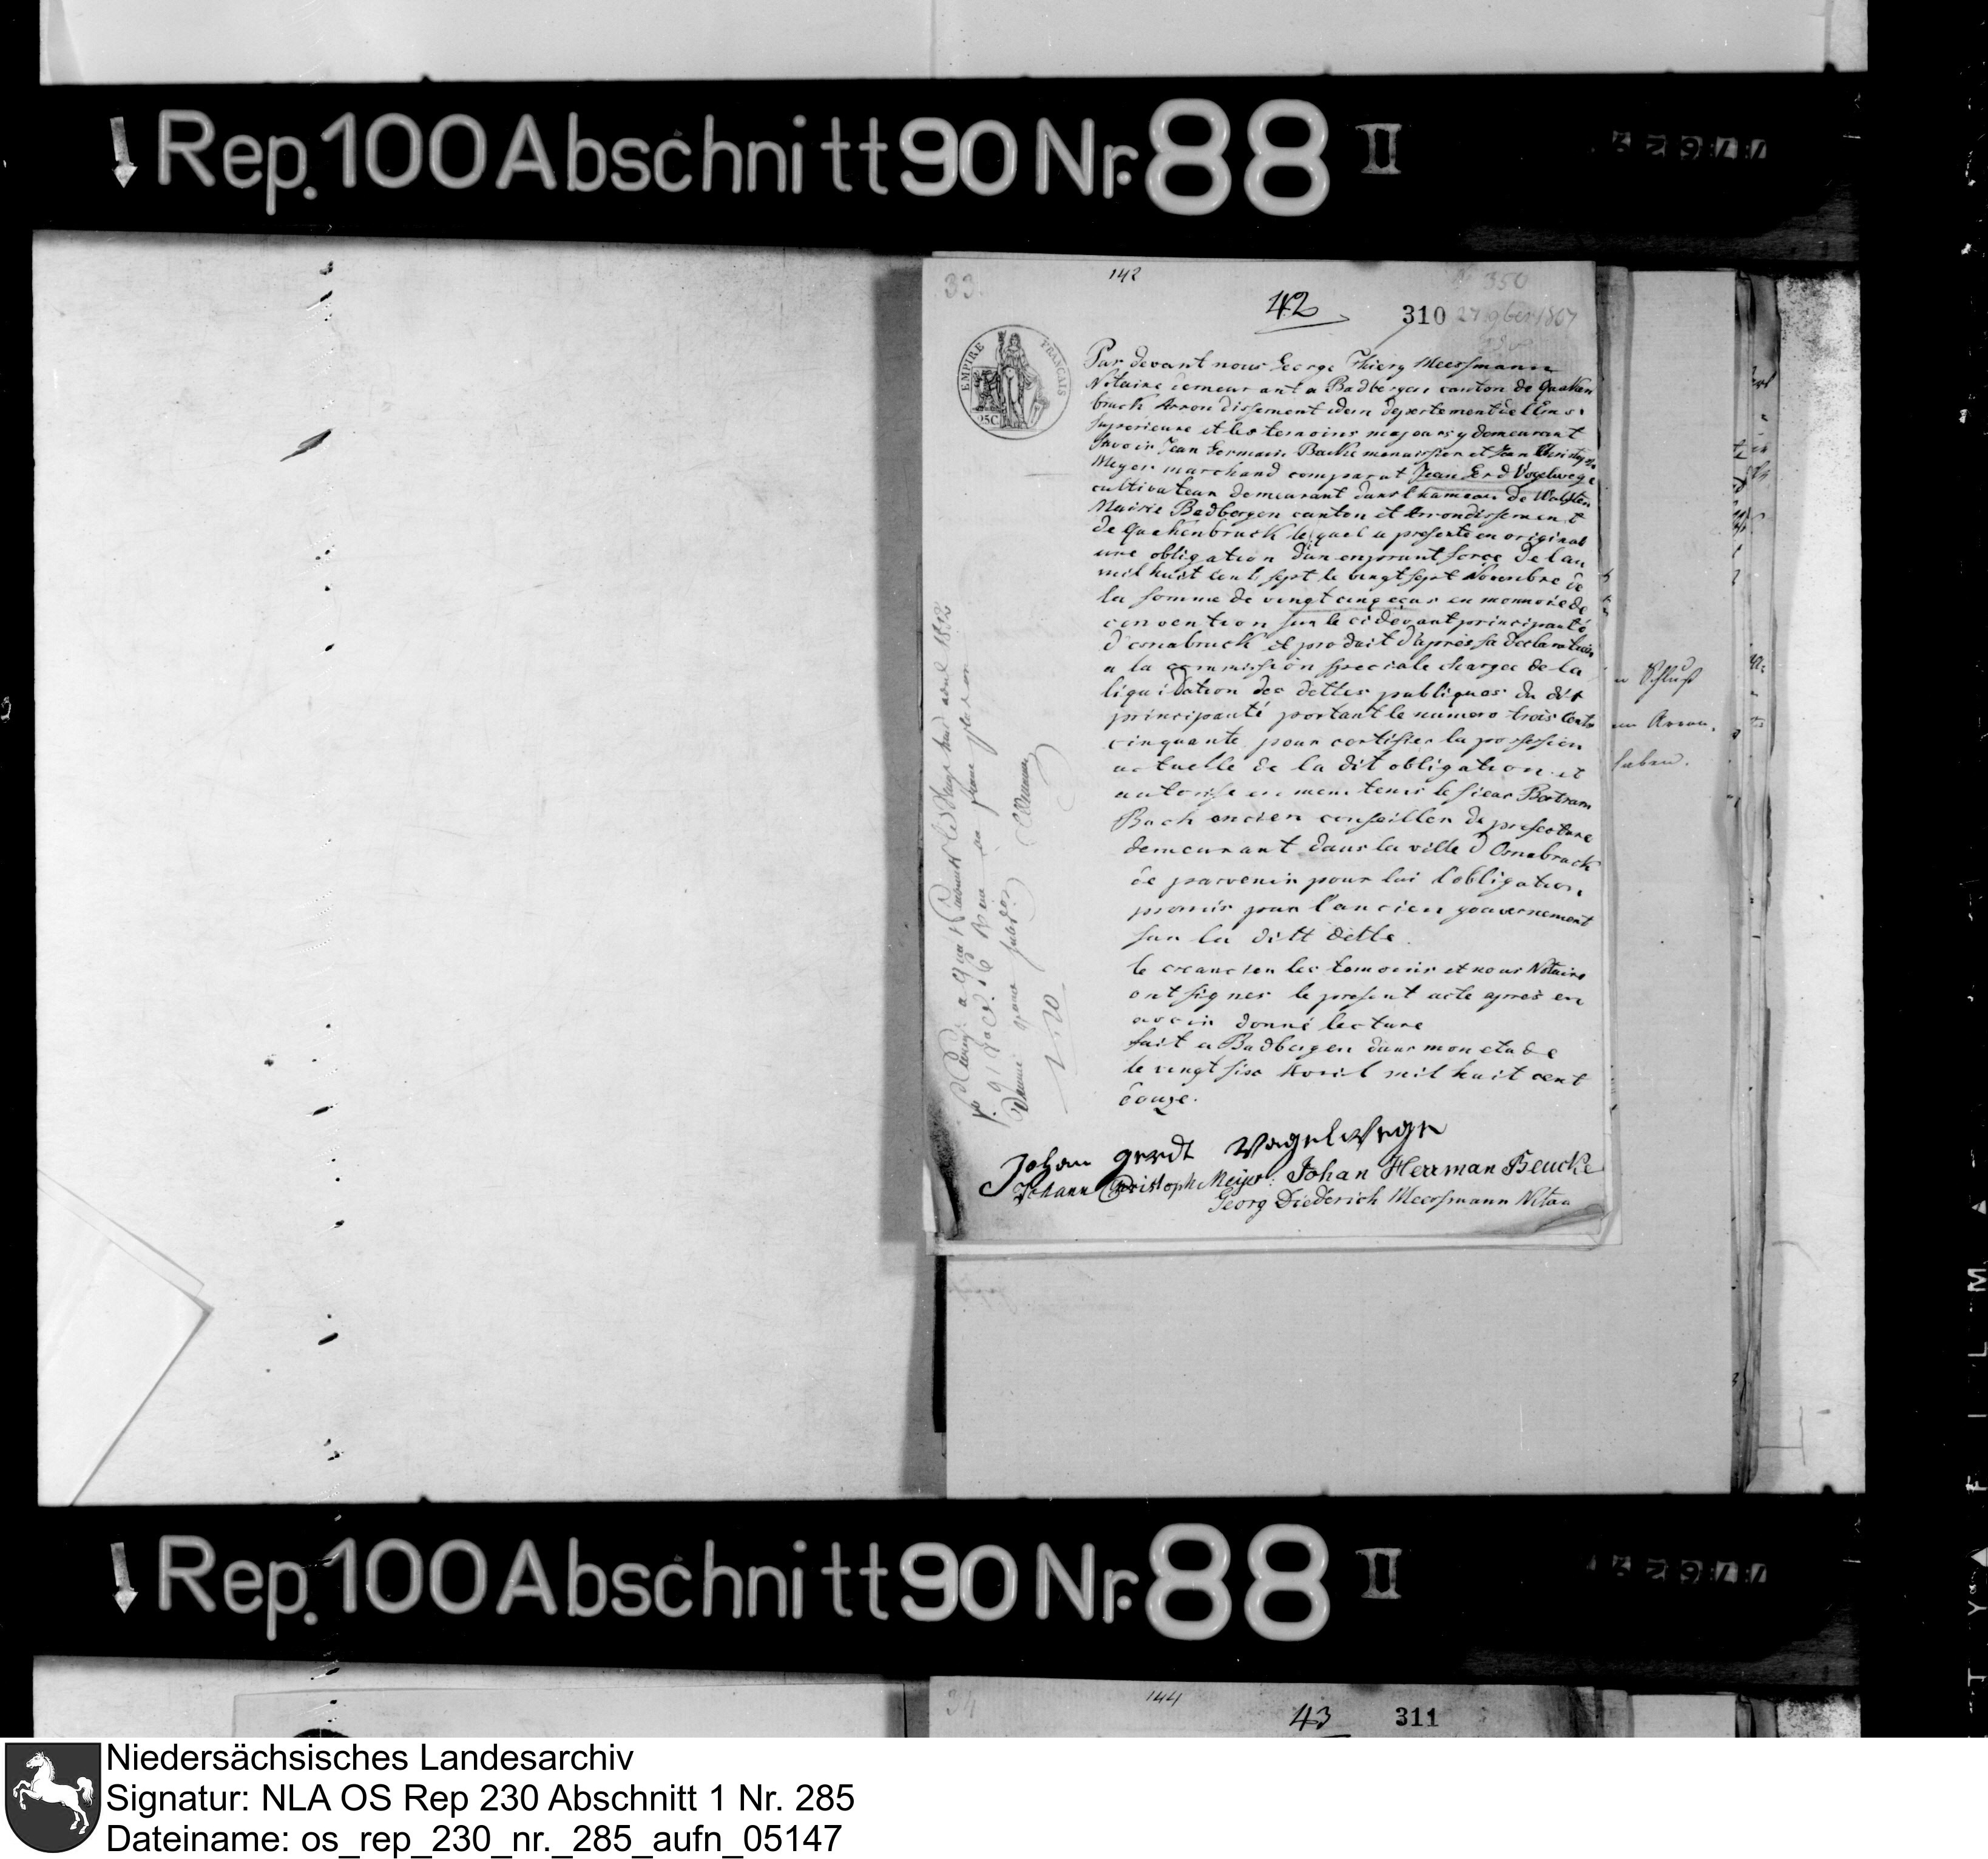 Rep. 100 Abschnitt 90 Nr. 88 II
33.
142
350
42
310 27 9ber 1807
EMPIRE FRANÇAIS
25C.
Par devant nous George Thierg Meessmann
Notaire demeurant a Badbergen canton de Quaken
bruck Arrondissement idem departement de l'Ems
superieure et les temoins majeurs y demeurant
savoir Jean Germain Beucke menuisier et Jean Christoph
Meyer marchand comparut Jean Gerd Vogelwege
cultivateur demeurant dans l hameau de Wohsten
Mairie Badbergen canton et Arrondissement
de Quakenbruck lequel a presenté en original
une obligation d'un emprunt forcé de l an
mil huit cent sept le vingt sept Novembre de
la somme de vingt cinq ecus en monnoie de
convention sur le cidevant principauté
d'osnabruck et produit d'apres sa declaration
a la commission speciale chargee de la
liquidation des dettes publiques du dit
principauté portant le numero trois Cents
cinquante pour certifier la possession
actuelle de la dit obligation et
autorise en mem tems le sieur Bertram
Bach ancien conseiller de prefecture
demeurant dans la ville d Osnabruck
de parvenir pour lui l obligation
promis par l'ancien gouvernement
sur la ditt dette.
le creancier les temoins et nous Notaire
ont signes le present acte apres en
avoir donné lecture
fait a Badbergen dans mon etude
le vingt six Avril mil huit cent
douze.
Johan gerdt Vagelwege
Johann Christoph Meijer. Johan Herrman Beucke
Georg Diederich Meessmann Notar
le Vingt huit avril 1812
un franc
1.10
Schluß
haben.
Rep. 100 Abschnitt 90 Nr. 88 II
34
144
43
311
Niedersächsisches Landesarchiv
Signatur: NLA OS Rep 230 Abschnitt 1 Nr. 285
Dateiname: os_rep_230_nr._285_aufn_05147